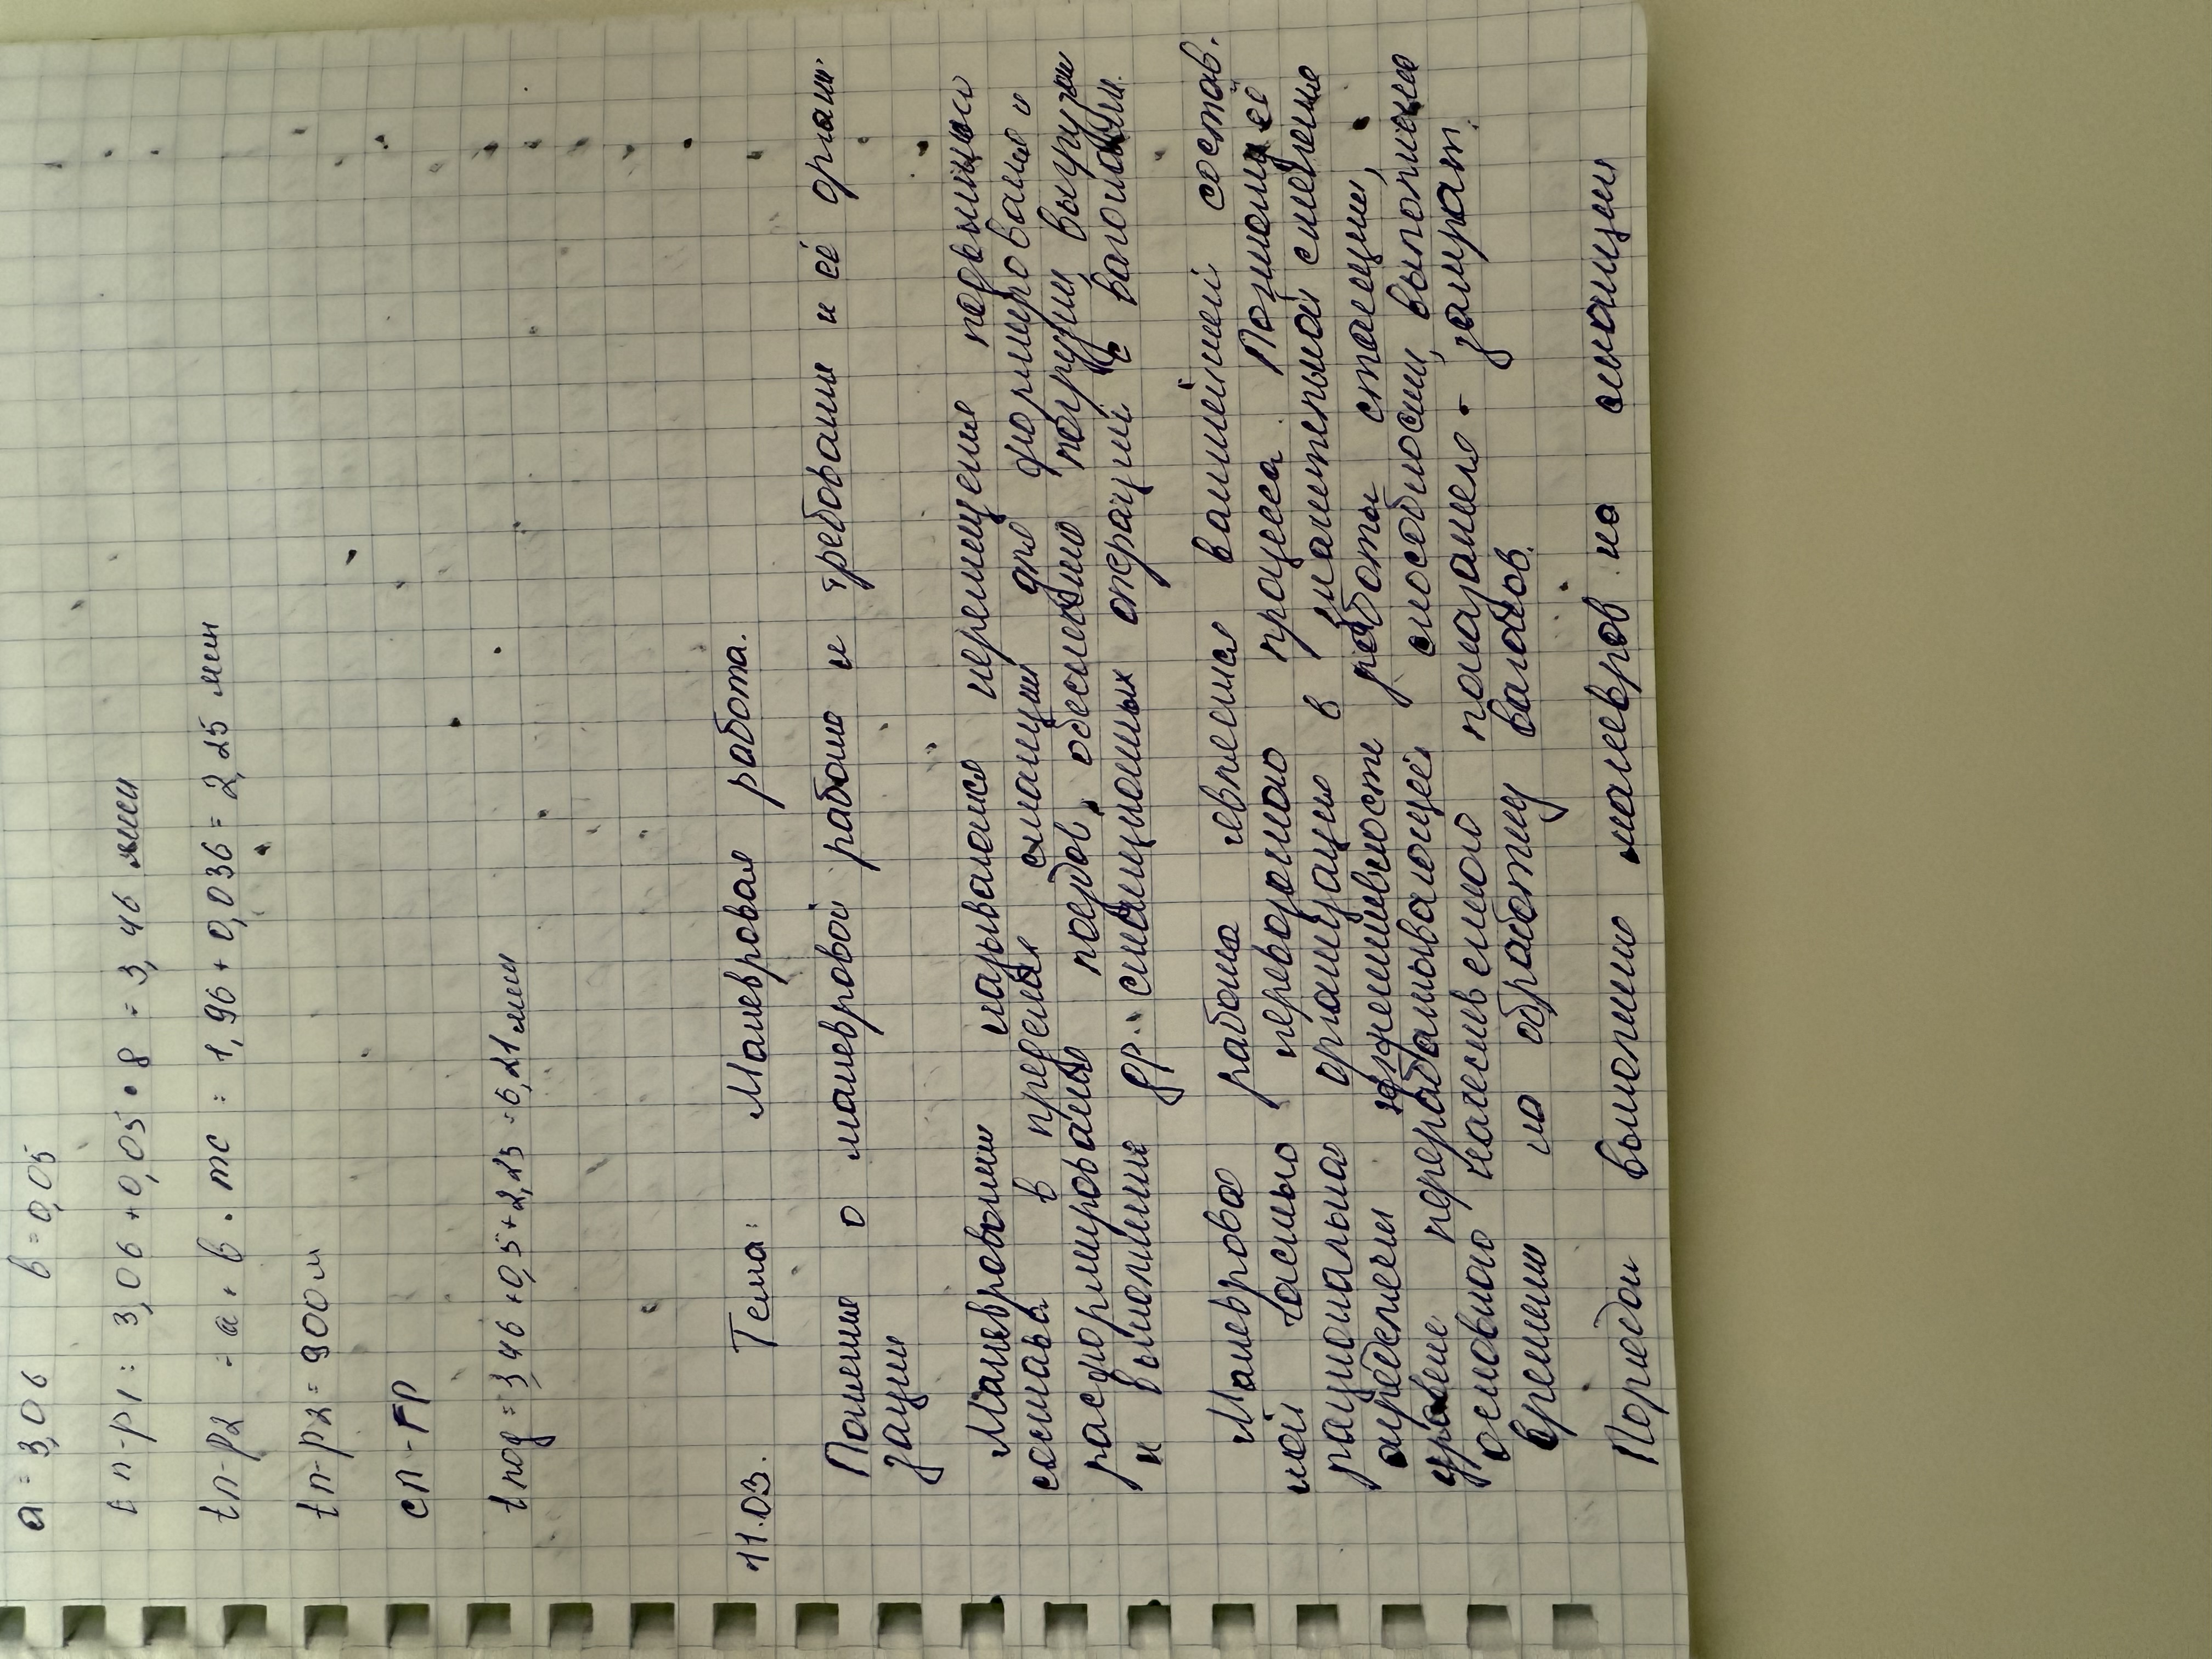 a = 3,06 в = 0,05
t п-р1 = 3,06 + 0,05 • 8 = 3,46 мин
tп-р2 = a + в • mc = 1,96 + 0,036 = 2,25 мин
tп-р2 = 900 м
сп-ГР
tпод = 3,46 + 0,5 + 2,25 = 6,21 мин
11.03. Тема: Маневровая работа.
Понятие о маневровой работе и требования и её органи-
зации
Маневровыми называются перемещения подвижного
состава в пределах станции для формирования и
расформирования поездов, обеспечению погрузки выгрузки
и выполнения др. станционных операций с вагонами.
Маневровая работа является важнейшей состав.
ной частью перевозочного процесса. Поэтому её
рациональная организация в значительной степени
определяет эффективность работы станции,
уровень перерабатывающей способности, выполнения
основного качественного показателя - затрат.
времени на обработку вагонов.
Порядок выполнения маневров на станции